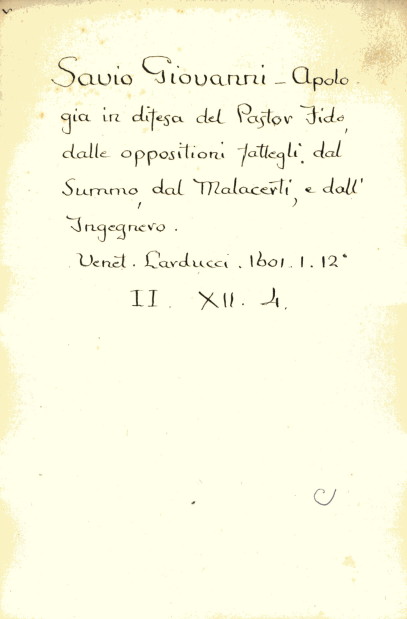 Savio Giovanni - Apolo
gia in difesa del Pastor Fido,
dalle oppositioni fattegli dal
Summo, dal Malacerti, e dall'
Ingegnero.
Venet. Larducci. 1601. 1. 12°
II. XII. 4.